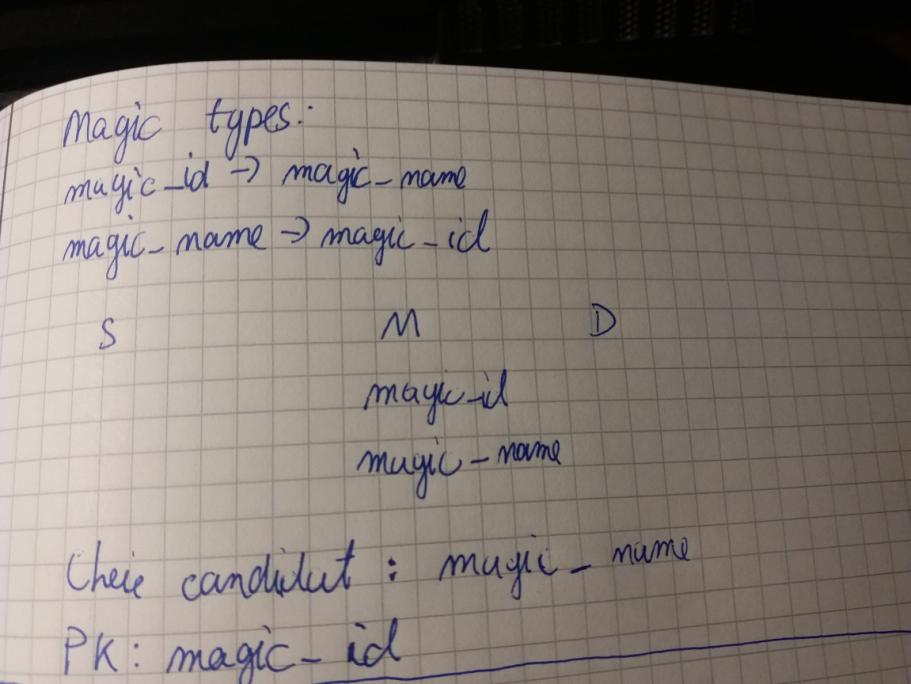 Magic types:
magic_id -> magic_name
magic_name -> magic_id
S M D
magic_id
magic_name
Cheie candidat : magic_name
PK: magic_id